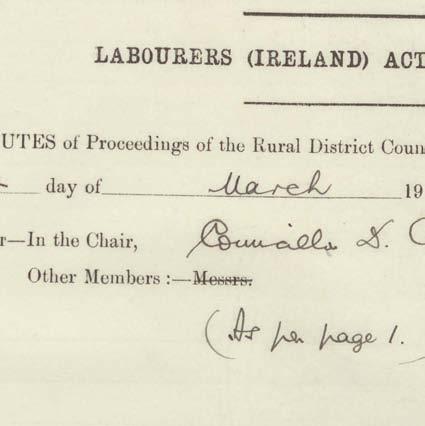 LABOURERS (IRELAND) ACT
UTES of Proceedings of the Rural District Coun
day of March 19
r—In the Chair, Councillor D.
Other Members :—Messrs.
(As per page 1.)